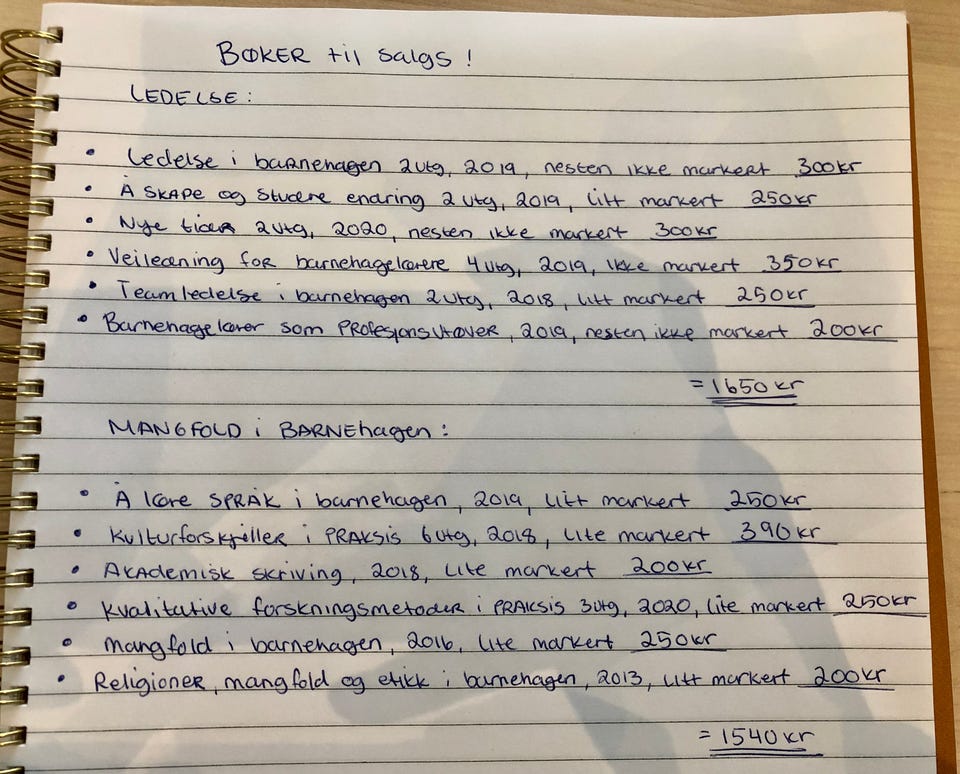 BØKER til salgs!
LEDELSE:
• Ledelse i barnehagen 2utg, 2019, nesten ikke markert 300kr
• Å SKAPE og studere endring 2utg, 2019, litt markert 250kr
• Nye tider 2utg, 2020, nesten ikke markert 300kr
• Veiledning for barnehagelærere 4utg, 2019, ikke markert 350kr
• Teamledelse i barnehagen 2utg, 2018, litt markert 250kr
• Barnehagelærer som PROfesjonsutøver, 2019, nesten ikke markert 200kr
= 1650 kr
MANGFOLD i BARNEhagen:
• Å lære SPRÅK i barnehagen, 2019, litt markert 250kr
• Kulturforskjeller i PRAKSIS 6utg, 2018, lite markert 390kr
• Akademisk skriving, 2018, lite markert 200kr
• Kvalitative forskningsmetoder i PRAKSIS 3utg, 2020, lite markert 250kr
• Mangfold i barnehagen, 2016, lite markert 250kr
• Religioner, mangfold og etikk i barnehagen, 2013, litt markert 200kr
= 1540 kr